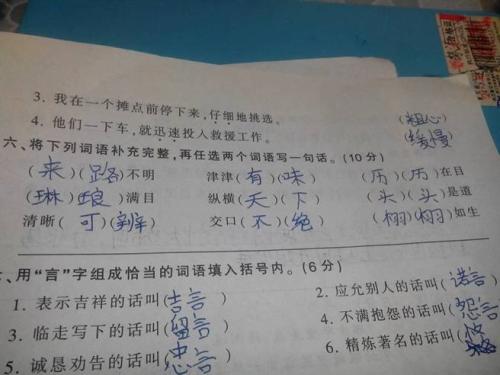 3. 我在一个摊点前停下来,仔细地挑选。 (粗心)
4. 他们一下车,就迅速投入救援工作。 (缓慢)
六、将下列词语补充完整,再任选两个词语写一句话。(10分)
(来)(路)不明 津津(有)(味) (历)(历)在目
(琳)(琅)满目 纵横(天)(下) (头)(头)是道
清晰(可)(辨) 交口(不)(绝) (栩)(栩)如生
、用“言”字组成恰当的词语填入括号内。(6分)
1. 表示吉祥的话叫(吉言) 2. 应允别人的话叫(诺言)
3. 临走写下的话叫(留言) 4. 不满抱怨的话叫(怨言)
5. 诚恳劝告的话叫(忠言) 6. 精炼著名的话叫(